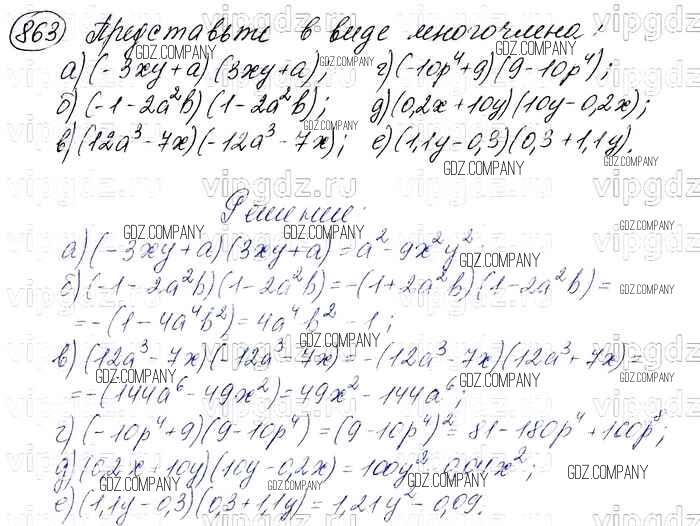 863 Представьте в виде многочлена:
а) (-3xy+a)(3xy+a); г) (-10p⁴+9)(9-10p⁴);
б) (-1-2a²b)(1-2a²b); д) (0,2x+10y)(10y-0,2x);
в) (12a³-7x)(-12a³-7x); е) (1,1y-0,3)(0,3+1,1y).
Решение:
а) (-3xy+a)(3xy+a)=a²-9x²y²;
б) (-1-2a²b)(1-2a²b)=-(1+2a²b)(1-2a²b)=
=-(1-4a⁴b²)=4a⁴b²-1;
в) (12a³-7x)(-12a³-7x)=-(12a³-7x)(12a³+7x)=
=-(144a⁶-49x²)=49x²-144a⁶;
г) (-10p⁴+9)(9-10p⁴)=(9-10p⁴)²=81-180p⁴+100p⁸;
д) (0,2x+10y)(10y-0,2x)=100y²-0,04x²;
е) (1,1y-0,3)(0,3+1,1y)=1,21y²-0,09.
vipgdz.ru
GDZ.COMPANY